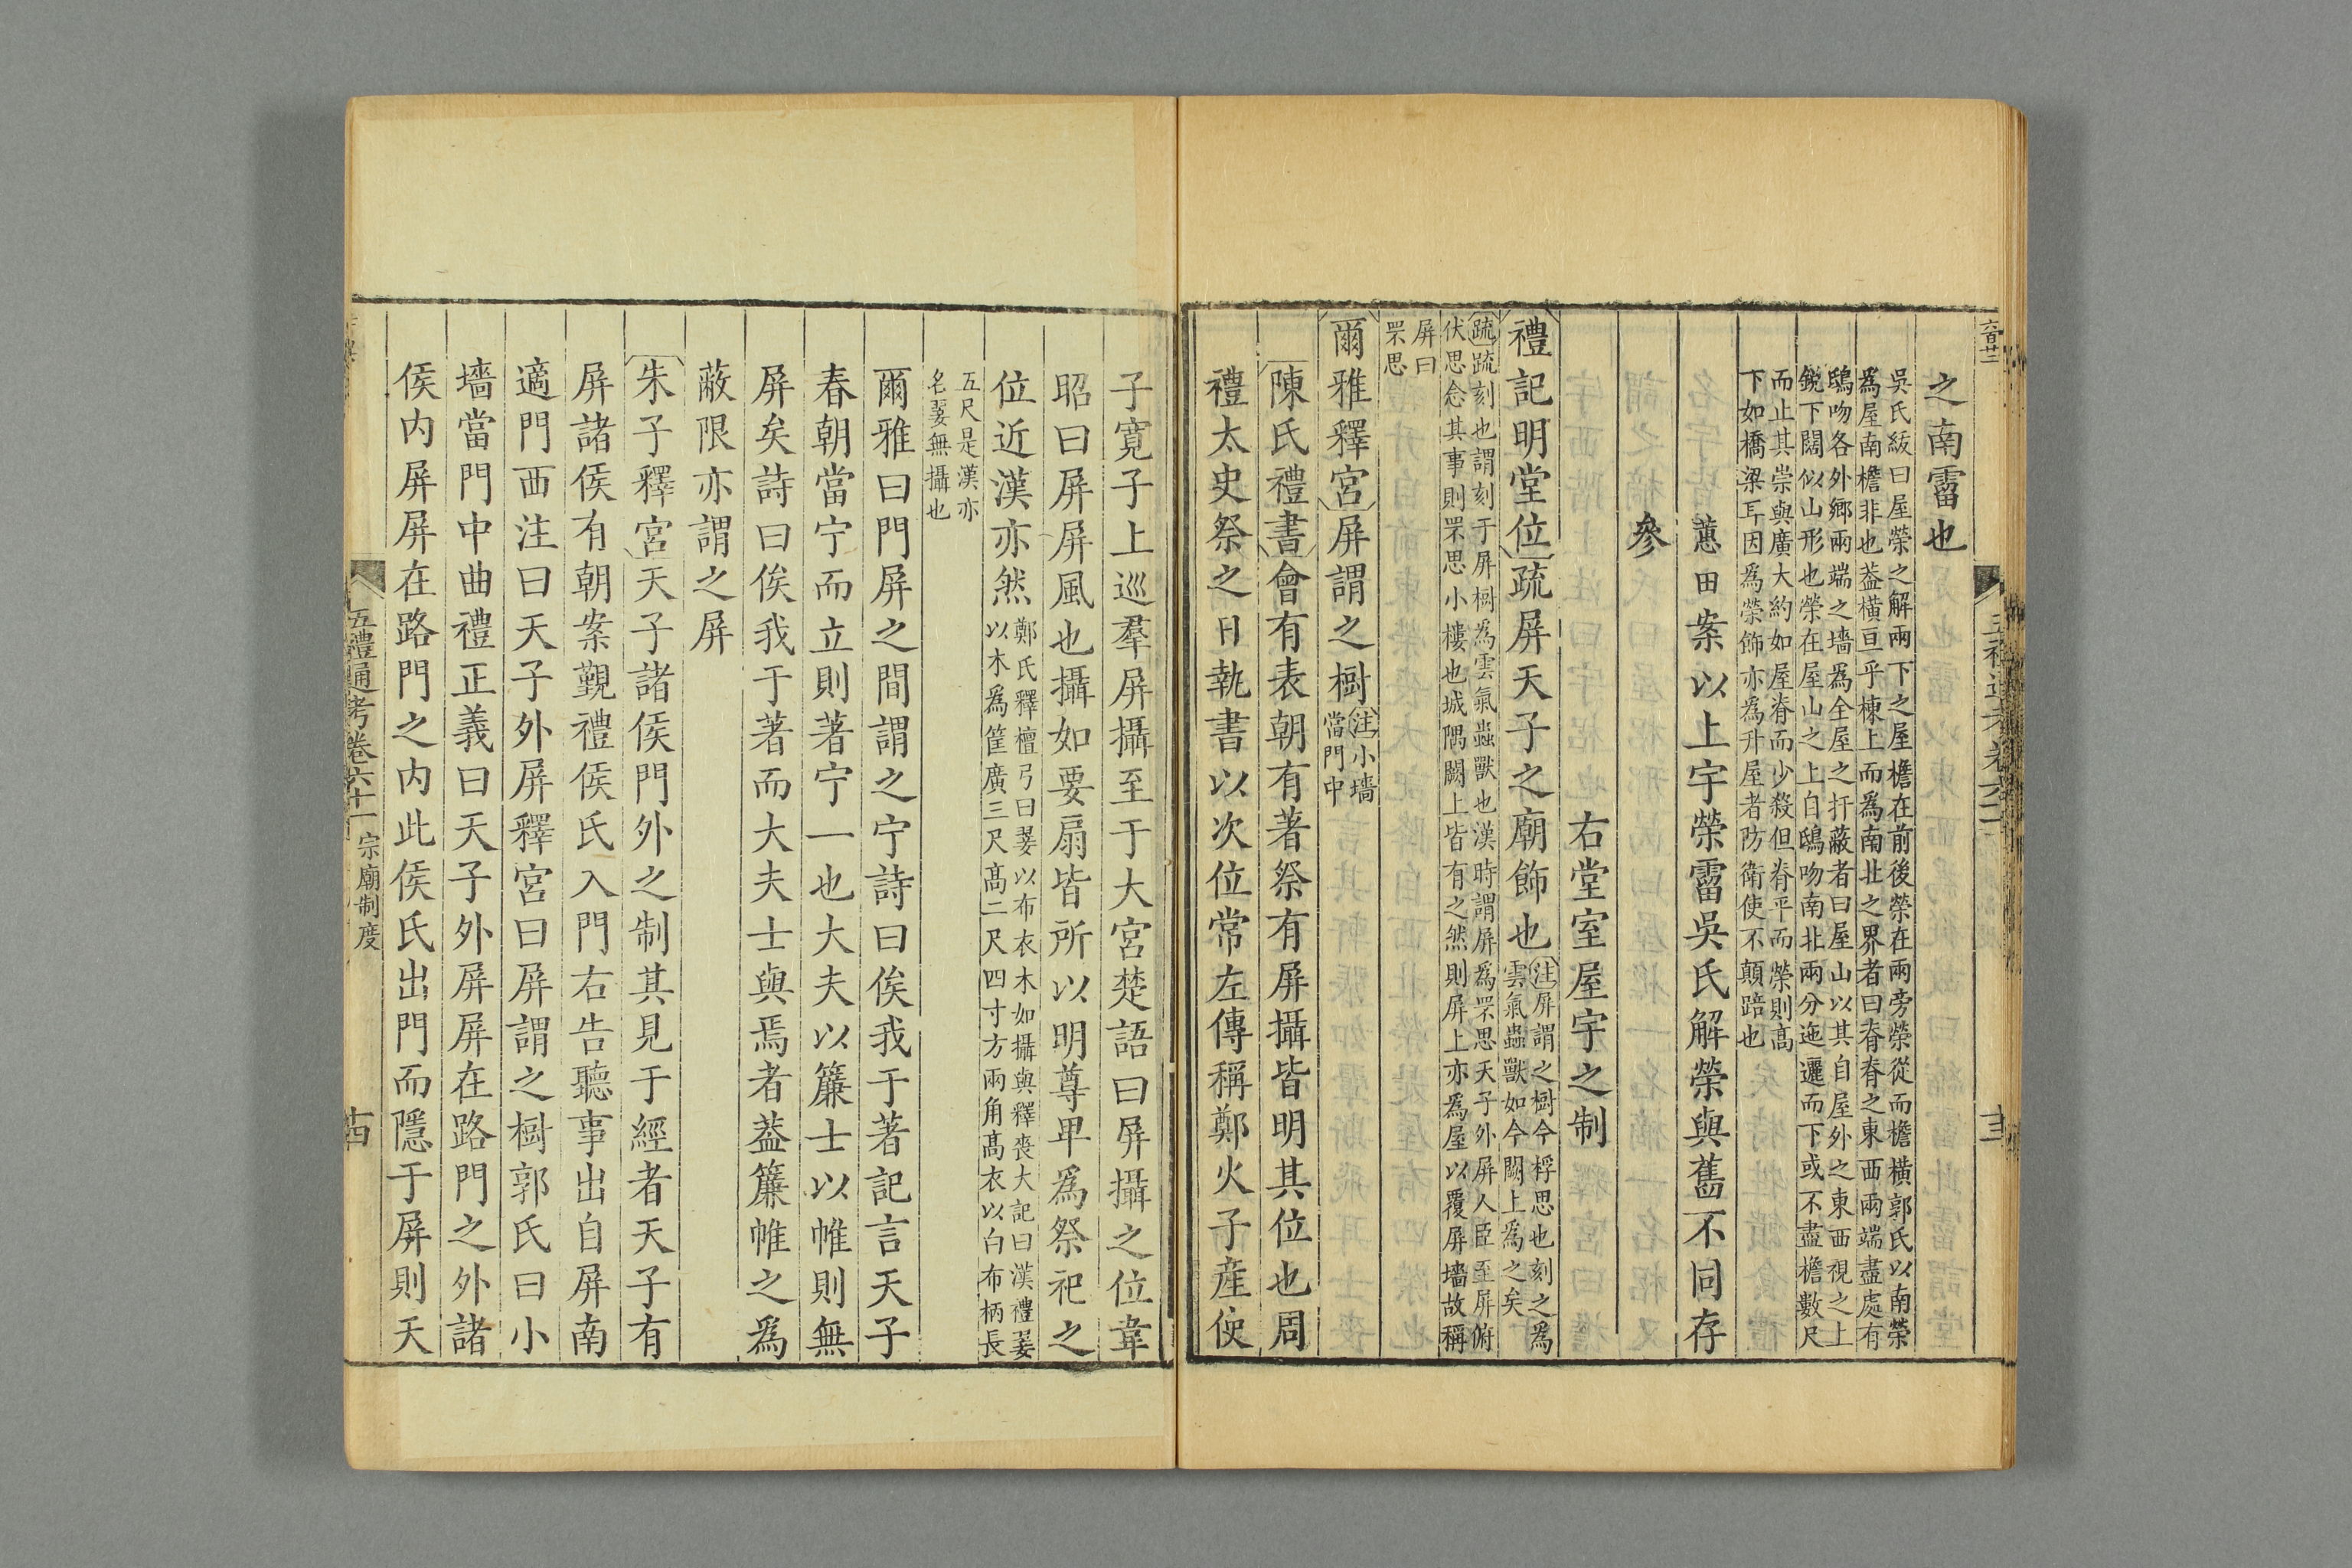 之南霤也
吳氏紱曰屋榮之解兩下之屋檐在前後榮在兩旁榮從而檐橫郭氏以南榮
爲屋南檐非也葢橫亘乎棟上而爲南北之界者曰脊脊之東西兩端盡處有
鴟吻各外鄉兩端之墻爲全屋之扞蔽者曰屋山以其自屋外之東西視之上
銳下闊似山形也榮在屋山之上自鴟吻南北兩分迤邐而下或不盡檐數尺
而止其崇與廣大約如屋脊而少殺但脊平而榮則高
下如橋梁耳因爲榮飾亦爲升屋者防衛使不顛踣也
蕙田案以上宇榮霤吳氏解榮與舊不同存
參
右堂室屋宇之制
禮記明堂位疏屏天子之廟飾也
注屏謂之樹今桴思也刻之爲
雲氣蟲獸如今闕上爲之矣
疏疏刻也謂刻于屏樹爲雲氣蟲獸也漢時謂屏爲罘思天子外屏人臣至屏俯
伏思念其事則罘思小樓也城隅闕上皆有之然則屏上亦爲屋以覆屏墻故稱
屏曰
罘思
爾雅釋宮屏謂之樹
注小墻
當門中
陳氏禮書會有表朝有著祭有屏攝皆明其位也周
禮太史祭之日執書以次位常左傳稱鄭火子產使
子寬子上巡羣屏攝至于大宮楚語曰屏攝之位韋
昭曰屏屏風也攝如要扇皆所以明尊卑爲祭祀之
位近漢亦然
鄭氏釋檀弓曰翣以布衣木如攝與釋喪大記曰漢禮翣
以木爲筐廣三尺高二尺四寸方兩角高衣以白布柄長
五尺是漢亦
名翣無攝也
爾雅曰門屏之間謂之宁詩曰俟我于著記言天子
春朝當宁而立則著宁一也大夫以簾士以帷則無
屏矣詩曰俟我于著而大夫士與焉者葢簾帷之爲
蔽限亦謂之屏
朱子釋宮天子諸侯門外之制其見于經者天子有
屏諸侯有朝案覲禮侯氏入門右告聽事出自屏南
適門西注曰天子外屏釋宮曰屏謂之樹郭氏曰小
墻當門中曲禮正義曰天子外屏屏在路門之外諸
侯內屏屏在路門之內此侯氏出門而隱于屏則天
五禮通考卷六十一 宗廟制度
十四